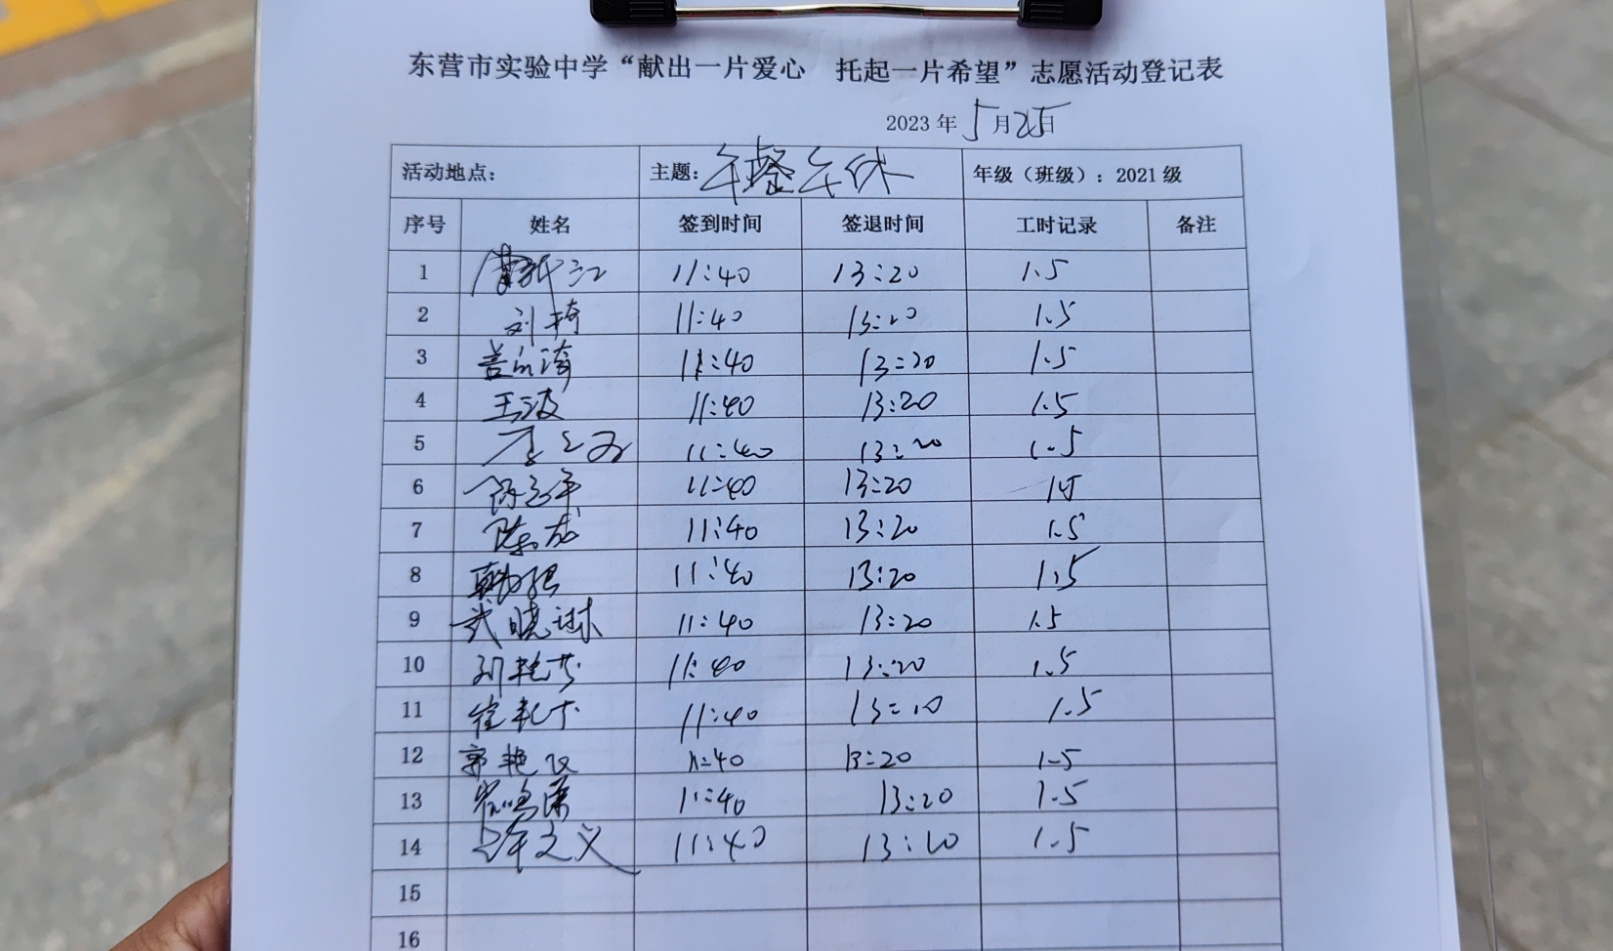 东营市实验中学“献出一片爱心 托起一片希望”志愿活动登记表
2023年5月25日
活动地点： 主题：午餐午休 年级（班级）：2021级
序号 姓名 签到时间 签退时间 工时记录 备注
1 11:40 13:20 1.5
2 刘琦 11:40 13:20 1.5
3 11:40 13:20 1.5
4 王波 11:40 13:20 1.5
5 11:40 13:20 1.5
6 11:40 13:20 1.5
7 陈龙 11:40 13:20 1.5
8 11:40 13:20 1.5
9 武晓琳 11:40 13:20 1.5
10 刘艳芬 11:40 13:20 1.5
11 11:40 13:20 1.5
12 郭艳 11:40 13:20 1.5
13 11:40 13:20 1.5
14 文义 11:40 13:20 1.5
15
16